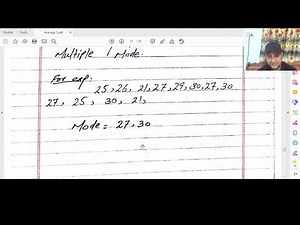 Home Tools
Multiple / Mode.
For exp:
25, 26, 21, 27, 29, 30, 27, 30
27, 25, 30, 21,
Mode = 27, 30